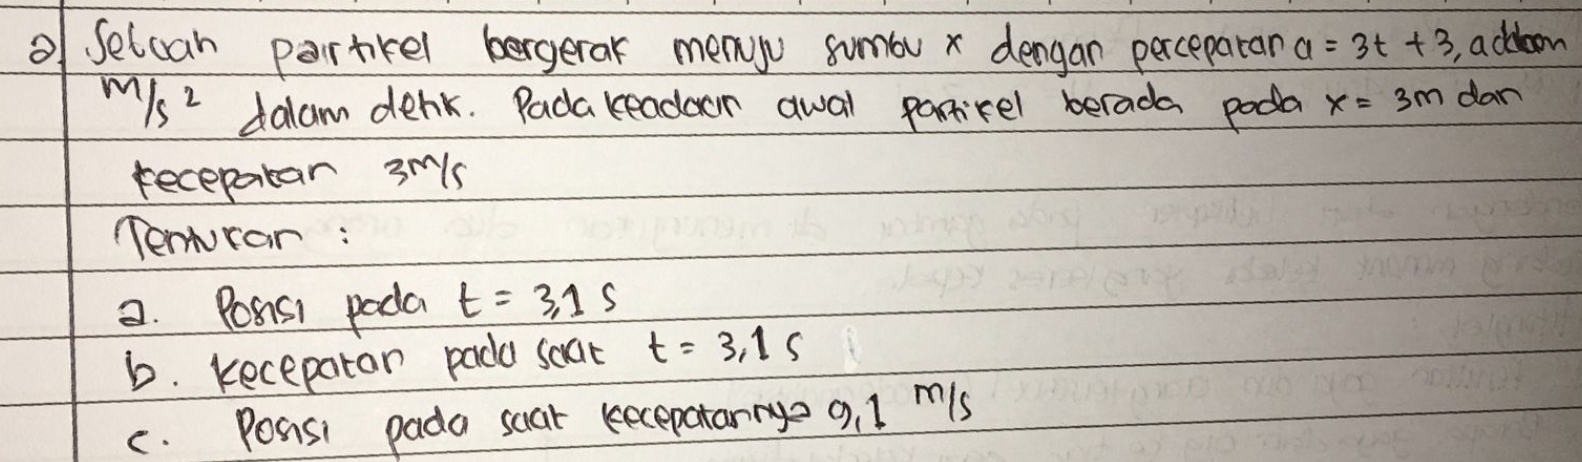 2) Sebuah partikel bergerak menuju sumbu x dengan percepatan a = 3t + 3, a dalam
m/s² dalam detik. Pada keadaan awal partikel berada pada x = 3m dan
kecepatan 3m/s
Tentukan :
a. Posisi pada t = 3,1 s
b. kecepatan pada saat t = 3,1 s
c. Posisi pada saat kecepatannya 9,1 m/s